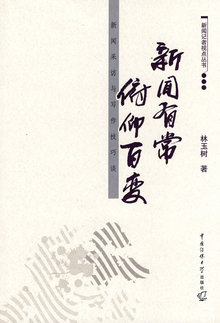 新闻记者视点丛书
新闻有常
俯仰百变
新闻采访与写作技巧谈
林玉树 著
中国传媒大学出版社